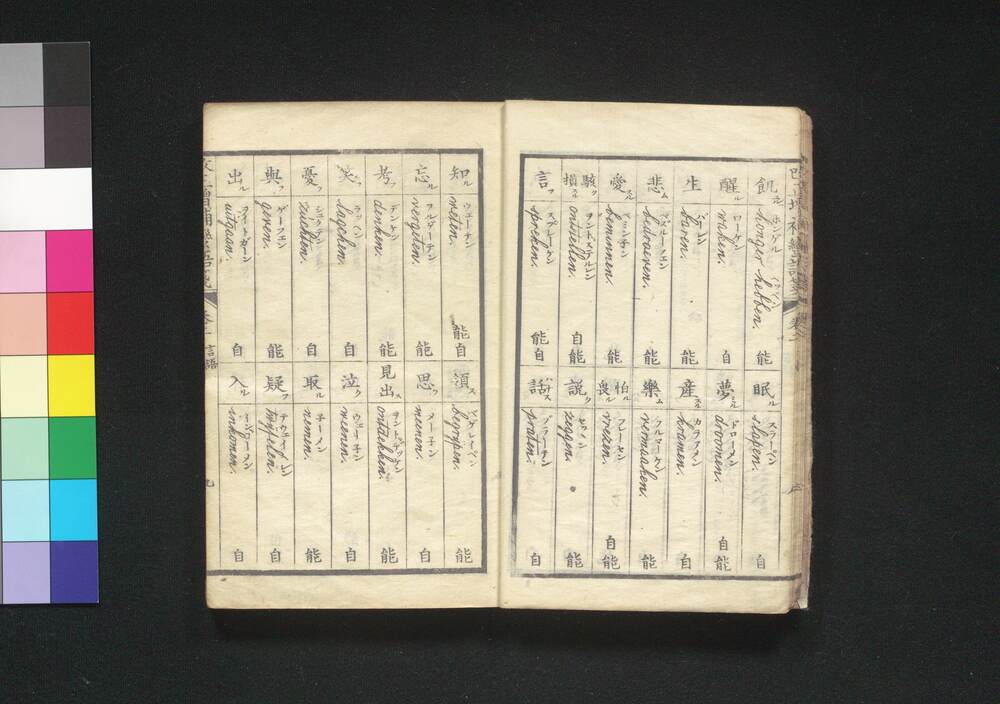 飢ル
ホンゲル ヘッベン
honger hebben.
能
醒ル
ワーケン
waken.
自
生
バーレン
baren.
能
悲ム
bedroeven.
能
愛スル
ベミンネン
beminnen.
能
駭ク
損スル
ontstellen.
自能
言フ
スプレーケン
spreken.
能自
眠ル
スラーペン
slapen.
自
夢ミル
ドローメン
droomen.
自能
産
カラアメン
kramen.
自
樂ム
フルマーケン
vermaaken.
能
怕ル
喪ル
フレーセン
vreezen.
自能
説ク
セッゲン
zeggen.
能
話ハナス
プラーテン
praten.
自
知ル
ウェーテン
weten.
能自
忘ル
フルゲーテン
vergeten.
能
考フ
デンケン
denken.
能
笑フ
ラッヘン
lagchen.
自
憂フ
zuchten.
自
與フ
ゲーフェン
geven.
能
出ル
オイトガーン
uitgaan.
自
須ス
ベゲレーペン
begrypen.
能
思フ
メーネン
meenen.
自
見出ス
オントデッケン
ontdekken.
能
泣ク
ウェーネン
weenen.
自
取ル
ネーメン
nemen.
能
疑フ
twyfelen.
自
入ル
インコーメン
inkomen.
自
言語
九